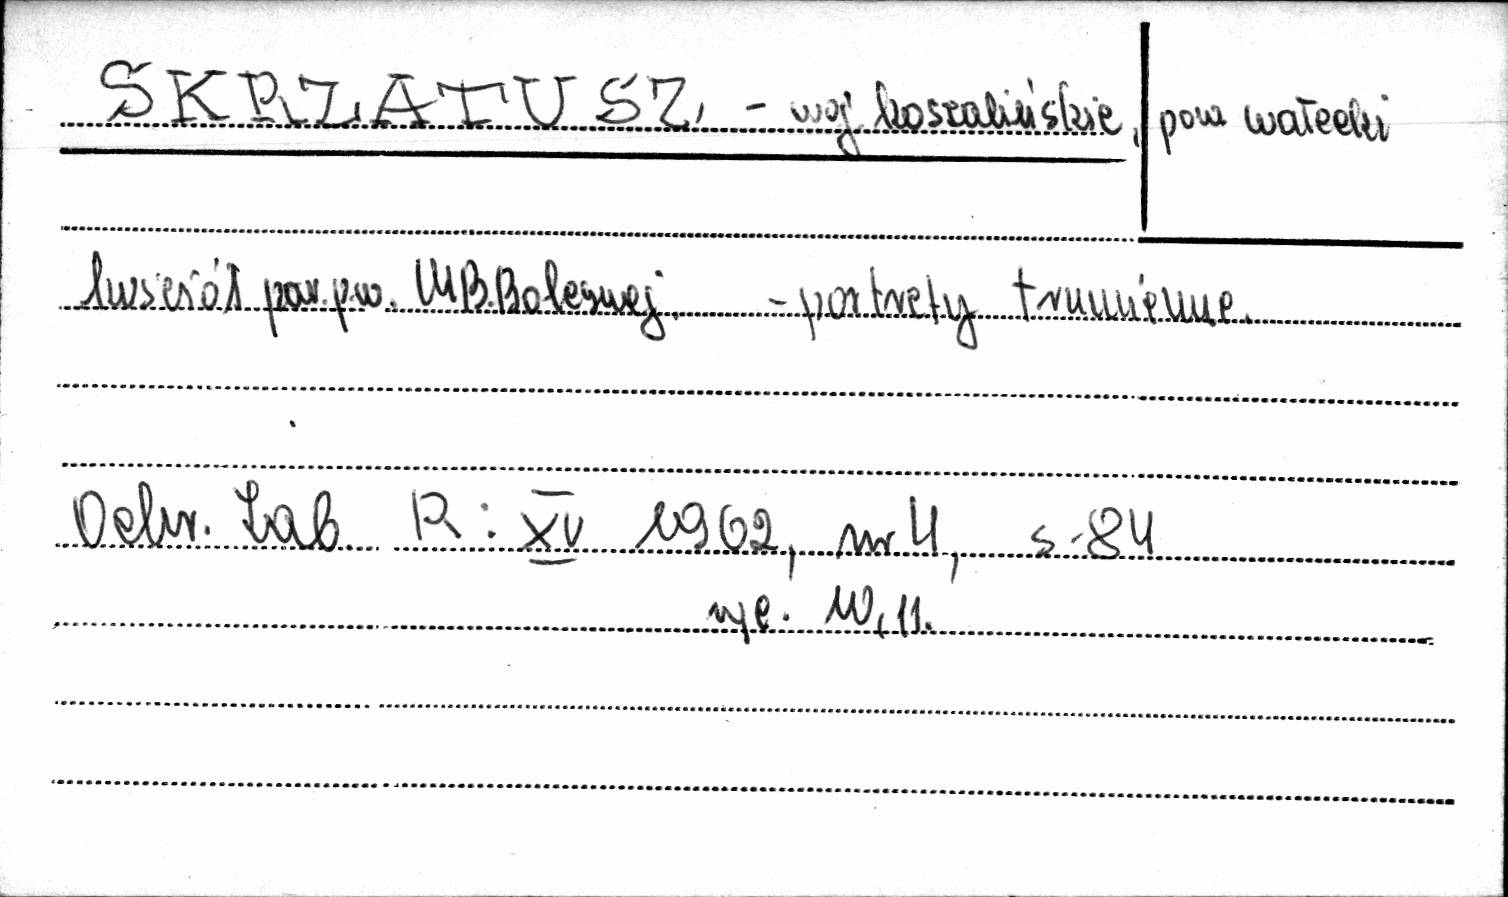 SKRZATUSZ, - woj koszalińskie, pow wałecki
kościół par. p.w. MB. Bolesnej. - portrety trumienne.
Ochr. Zab. R: XV 1962, nr 4, s-84
ryc. 10, 11.